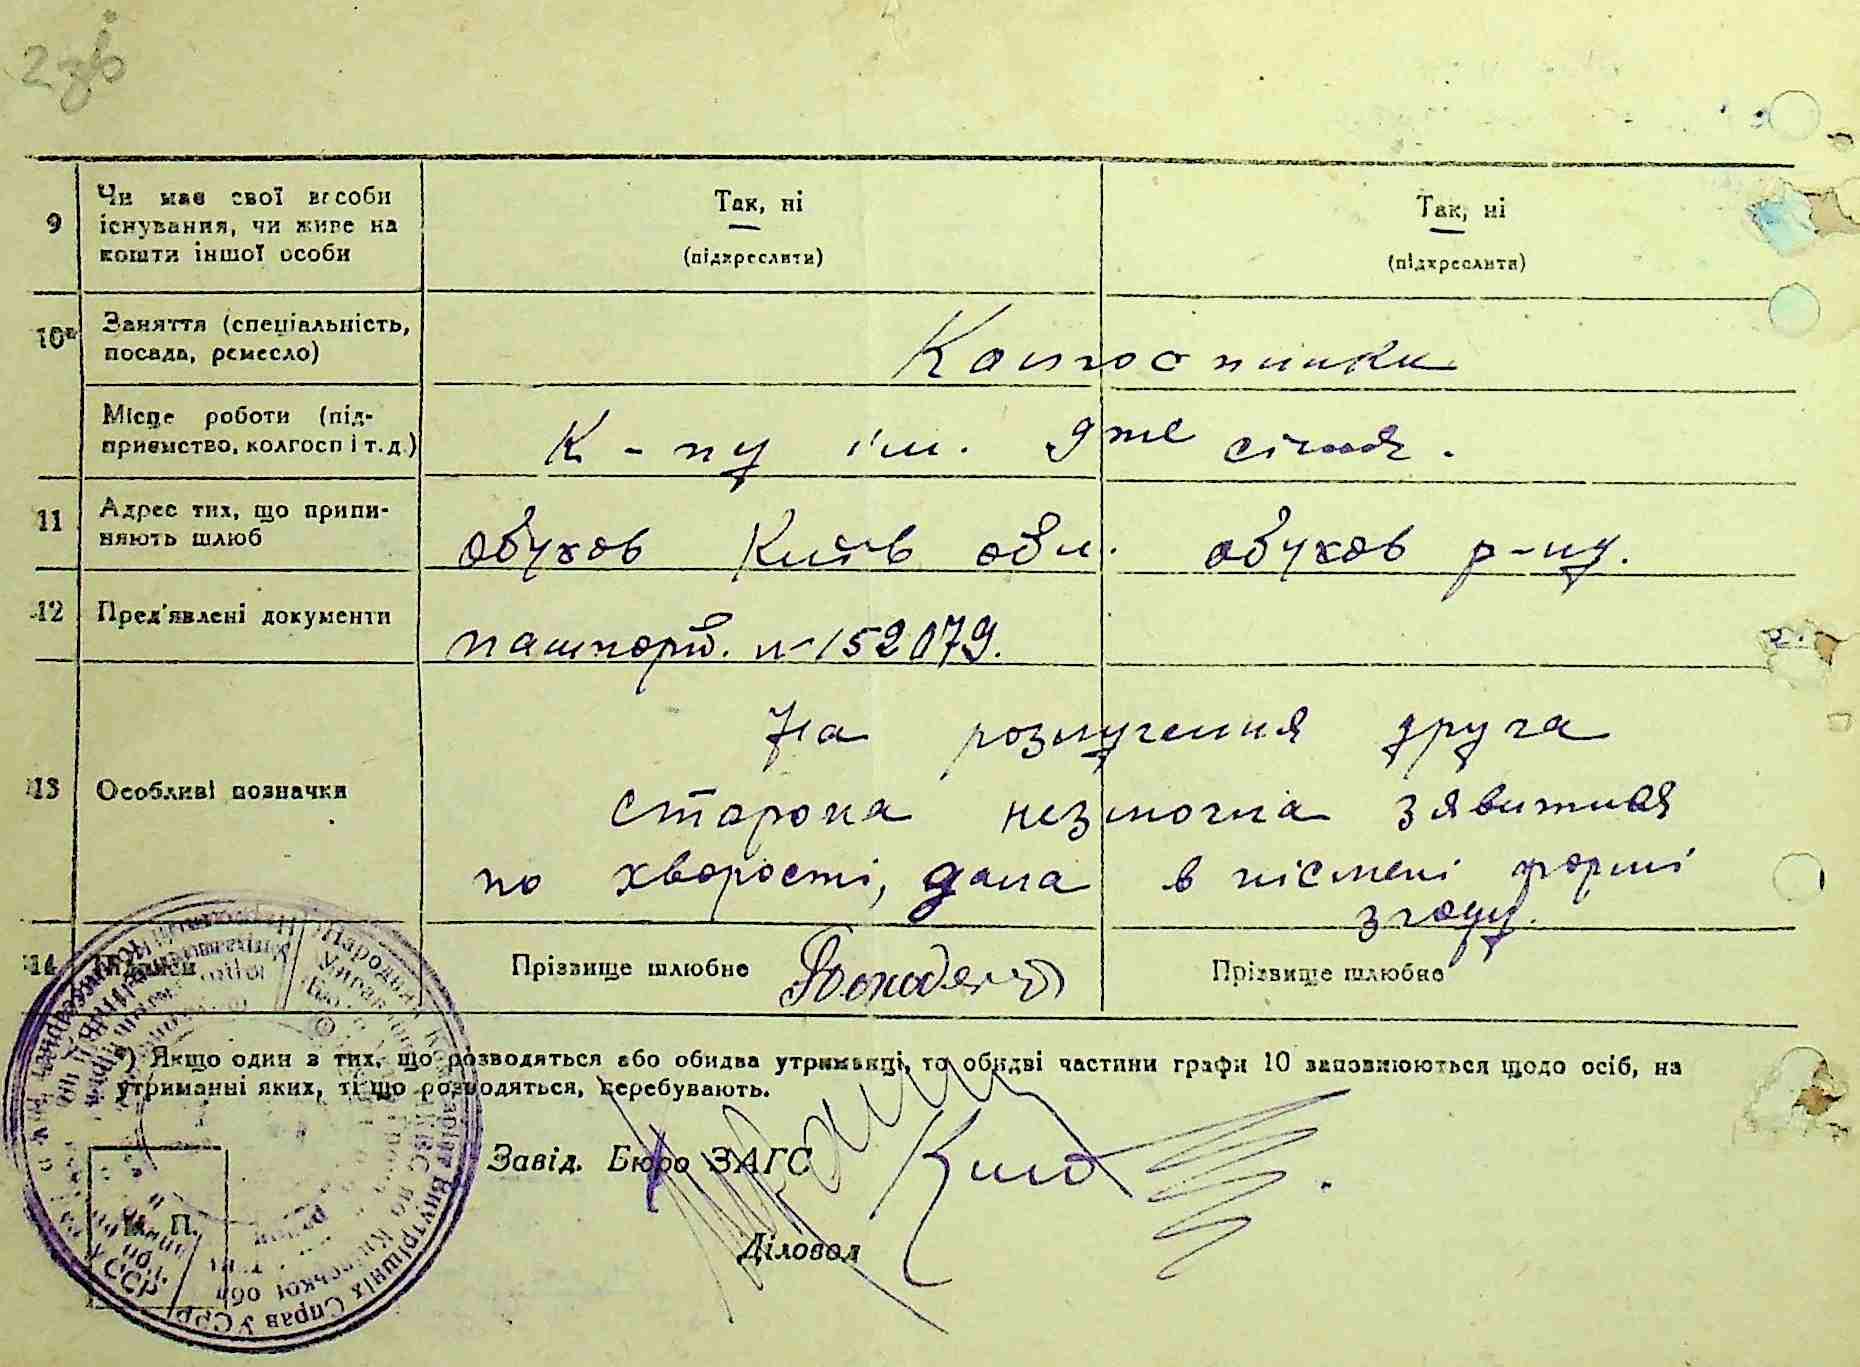 2зв
9
Чи має свої засоби
існування, чи живе на
кошти іншої особи
Так, ні
(підкреслити)
Так, ні
(підкреслити)
10
Заняття (спеціальність,
посада, ремесло)
Колгоспники
Місце роботи (під-
приємство, колгосп і т. д.)
К-пу ім. 9те січня.
11
Адрес тих, що припи-
няють шлюб
Обухов Київ обл. Обухов р-ну.
12
Пред'явлені документи
пашпорт. № 152079.
13
Особливі позначки
На розлучення друга
сторона незмогла зявитися
по хворості, дала в пісмені формі
згоду.
14
Підписи
Прізвище шлюбне
Прізвище шлюбне
*) Якщо один з тих, що розводяться або обидва утриманці, то обидві частини графи 10 заповнюються щодо осіб, на
утриманні яких, ті що розводяться, перебувають.
Завід. Бюро ЗАГС
Діловод
М. П.
Народний Комісаріат Внутрішніх Справ УСРР